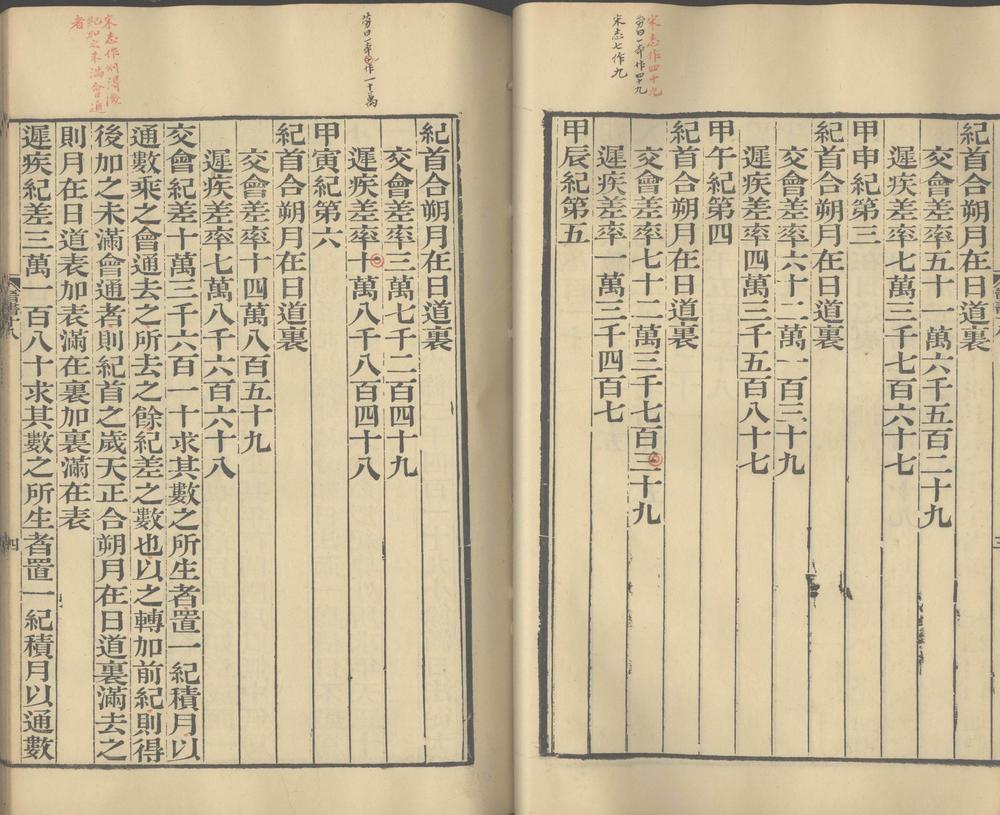 宋志作四十九
勞曰一本作四九
宋志七作九
紀首合朔月在日道裏
交會差率五十一萬六千五百二十九
遲疾差率七萬三千七百六十七
甲申紀第三
紀首合朔月在日道裏
交會差率六十二萬一百三十九
遲疾差率四萬三千五百八十七
甲午紀第四
紀首合朔月在日道裏
交會差率七十二萬三千七百三十九
遲疾差率一萬三千四百七
甲辰紀第五
勞曰一本作一十萬
宋志作則得後
紀加之未滿會通
者
紀首合朔月在日道裏
交會差率三萬七千二百四十九
遲疾差率十萬八千八百四十八
甲寅紀第六
紀首合朔月在日道裏
交會差率十四萬八百五十九
遲疾差率七萬八千六百六十八
交會紀差十萬三千六百一十求其數之所生者置一紀積月以
通數乘之會通去之所去之餘紀差之數也以之轉加前紀則得
後加之未滿會通者則紀首之歲天正合朔月在日道裏滿去之
則月在日道表加表滿在裏加裏滿在表
遲疾紀差三萬一百八十求其數之所生者置一紀積月以通數
四